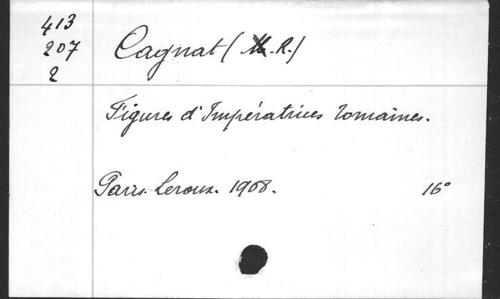 413
207
2
Cagnat (M. R.)
Figures d'Impératrices romaines.
Paris. Leroux. 1908. 16°